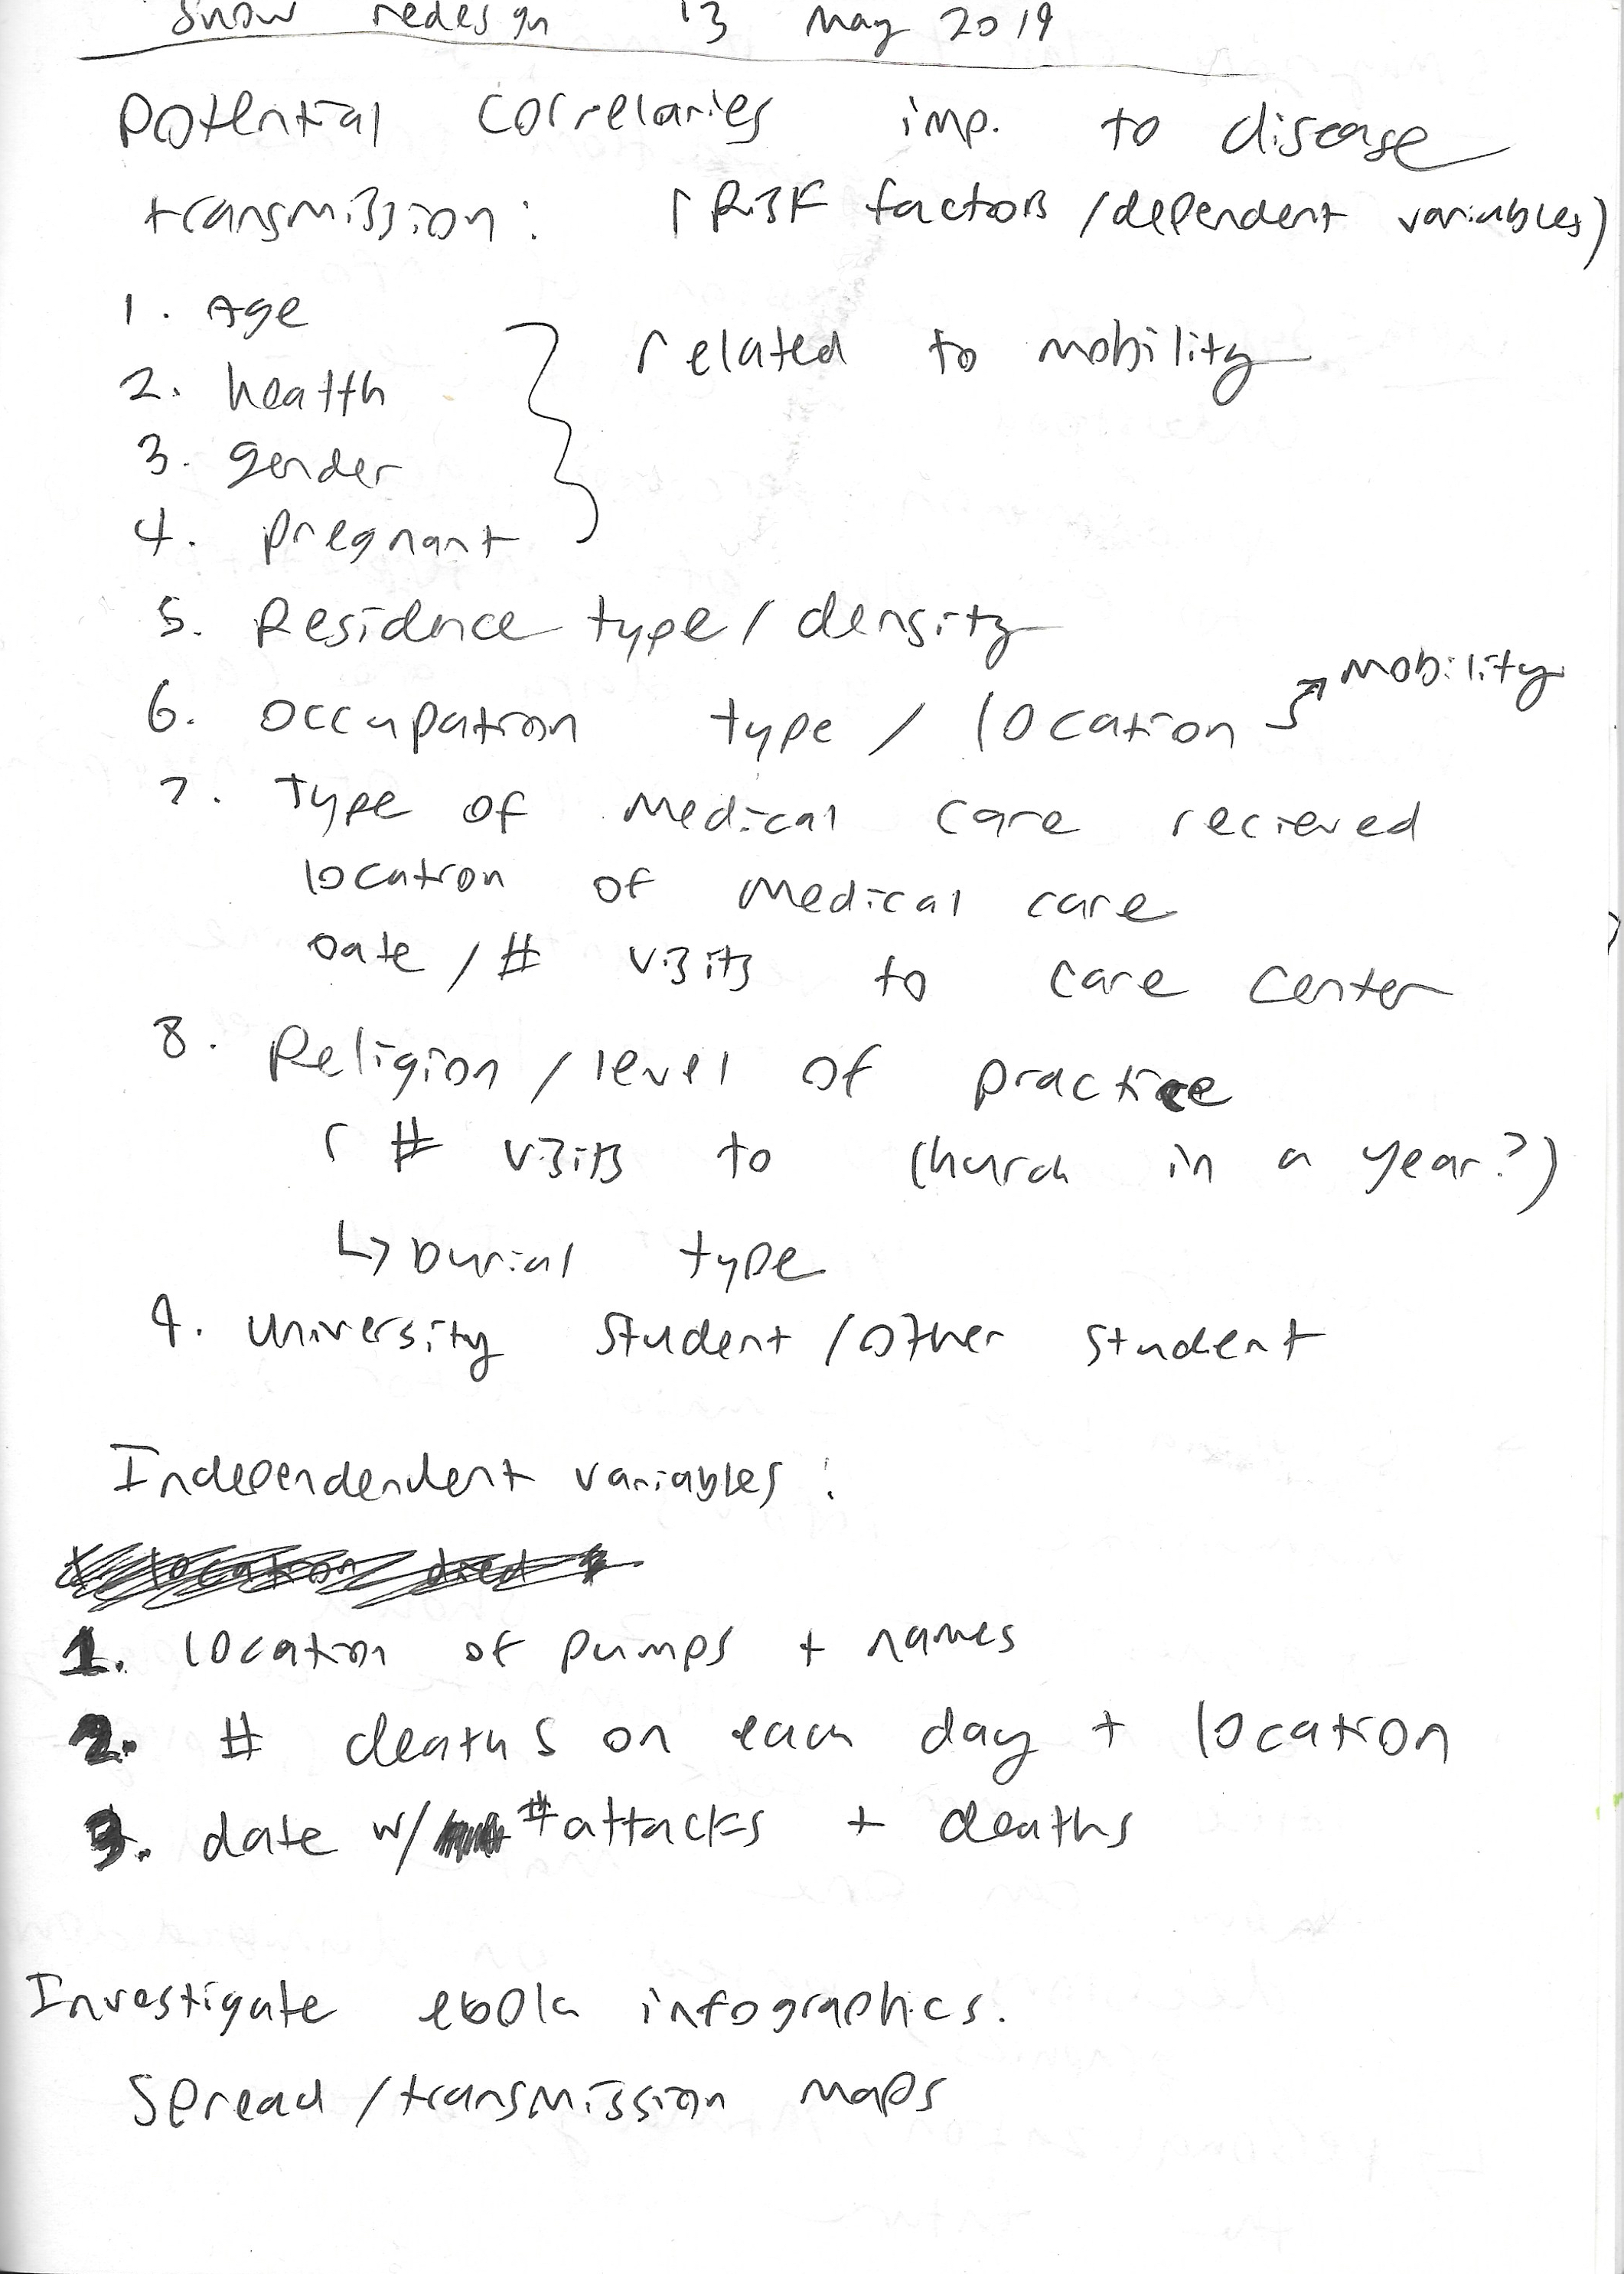 Snow redesign 13 May 2019
Potential correlaries imp. to disease
transmission: (Risk factors/dependent variables)
1. Age
2. health
3. gender
4. pregnant
related to mobility
5. Residence type/density
6. occupation type / location → mobility
7. Type of medical care recieved
location of medical care
Date / # visits to care center
8. Religion / level of practice
(# visits to church in a year?)
↳ burial type
9. University student / other student
Independendent variables:
1. location of pumps + names
2. # deaths on each day + location
3. date w/ # attacks + deaths
Investigate ebola infographics.
Spread / transmission maps